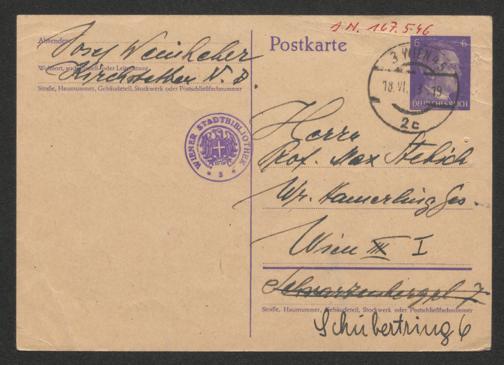 Absender:
Josef Weinheber
Wohnort, auch Zustell- oder Leitpostamt
Kirchstetten N. D.
Straße, Hausnummer, Gebäudeteil, Stockwerk oder Postschließfachnummer
WIENER STADTBIBLIOTHEK
Postkarte
167.546
6 6
DEUTSCHES REICH
3 WIEN
18.VI.
19
2c
Herrn
Prof. Max Stebich
Wr. Hamerlingges.
Wien III I
Schwarzenbergpl 7
Straße, Hausnummer, Gebäudeteil, Stockwerk oder Postschließfachnummer
Schubertring 6